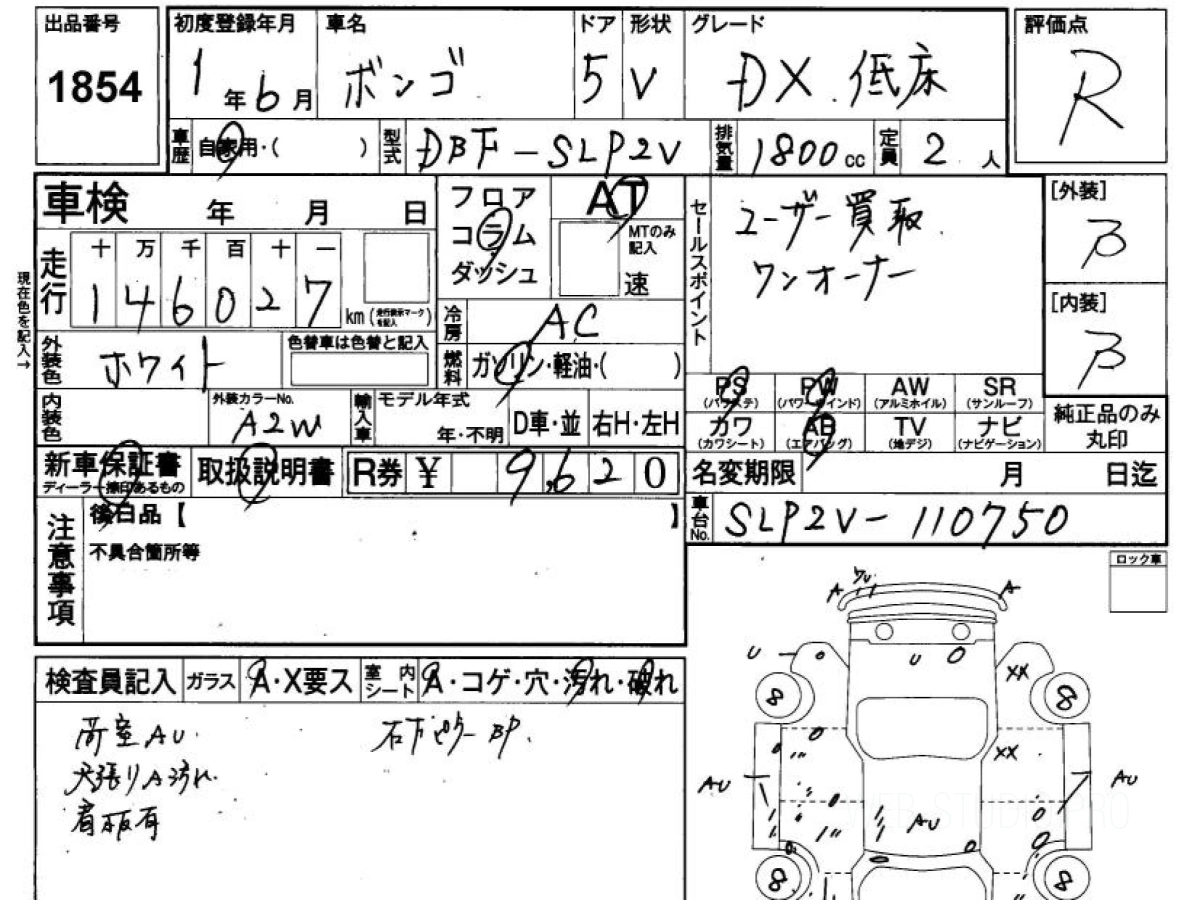 出品番号 1854
初度登録年月 1年6月
車名 ボンゴ
ドア 5
形状 V
グレード DX 低床
評価点 R
車歴 自家用・( )
型式 DBF-SLP2V
排気量 1800cc
定員 2人
車検 年 月 日
フロア
コラム
ダッシュ
AT
MTのみ記入
速
セールスポイント
ユーザー買取
ワンオーナー
[外装] B
[内装] B
現在色を記入→
走行 十 万 千 百 十 一
146027 km (走行表示マークを記入)
冷房 AC
燃料 ガソリン・軽油・( )
外装色 ホワイト
色替車は色替と記入
内装色
外装カラーNo. A2W
輸入車 モデル年式 年・不明
D車・並 右H・左H
PS (パワステ)
PW (パワーウインド)
AW (アルミホイル)
SR (サンルーフ)
カワ (カワシート)
AB (エアバッグ)
TV (地デジ)
ナビ (ナビゲーション)
純正品のみ丸印
新車保証書
ディーラー捺印あるもの
取扱説明書
R券 ¥ 9,620
名変期限 月 日迄
車台No. SLP2V-110750
注意事項
後日品【 】
不具合箇所等
ロック車
検査員記入
ガラス A・X要ス
室内シート A・コゲ・穴・汚れ・破れ
荷室AU.
天張りA汚れ.
看板有
右下ピラーBP.
A ワU A
U U
XX
8 8
XX
AU AU
AU
8 8
WEB-STUDIO.PRO